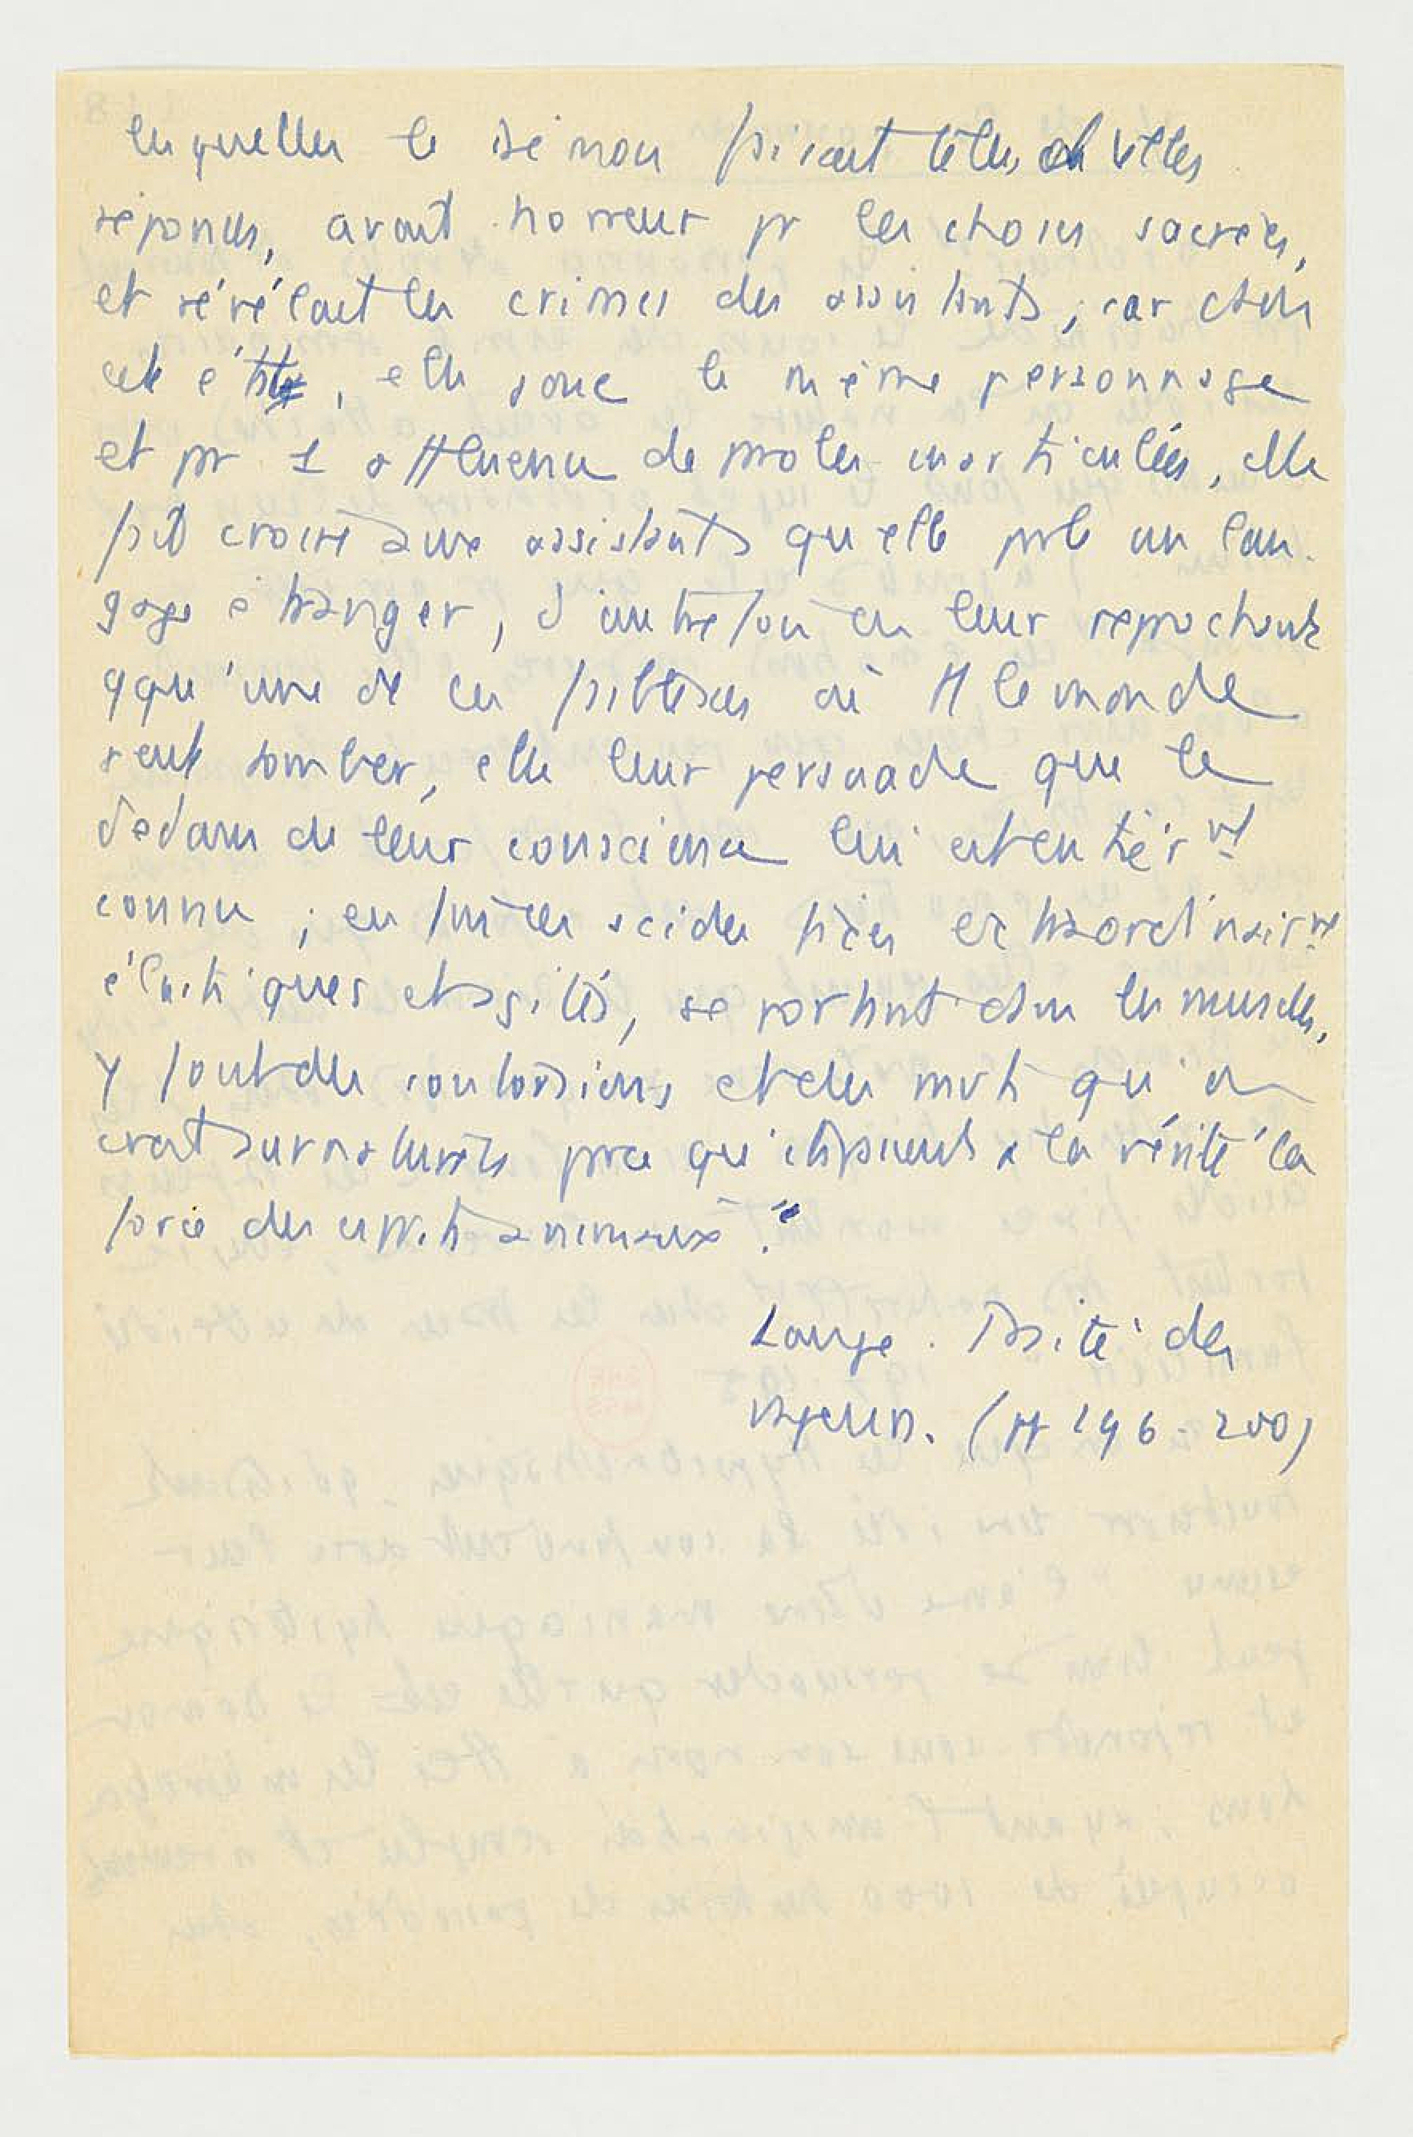 lesquelles le démon faisait telles et telles
réponses, avait horreur pr les choses sacrées,
et révélait les crimes des assistants ; car dans
cet état, elle joue le même personnage
et pr 1 affluence de paroles inarticulées, elle
fait croire aux assistants qu'elle parle un lan-
gage étranger, d'autre fois en leur reprochant
qqu'une de ces faiblesses où tt le monde
peut tomber, elle leur persuade que le
dedans de leur conscience lui est entièrnt
connu ; enfin ces acides très extraordinairnt
élastiques et agités, se portant dans les muscles,
y font des contorsions et des mvts qu'on
croit surnaturels parce qu'ils passent à la vérité la
force des esprits animaux".
Lange. Traité des
vapeurs. (pp 196-200)